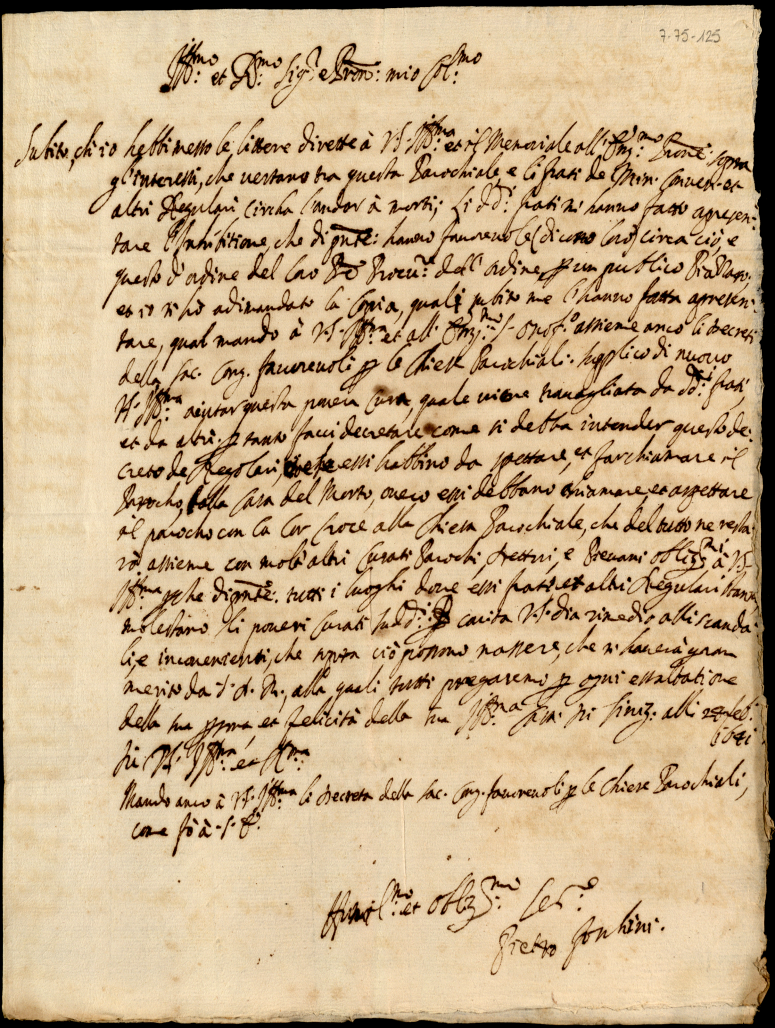 7-75-125
Ill.mo et R.mo Sig.r e Pron: mio Col.mo
Subito, ch'io hebbi messo le littere dirette à V.S. Ill.ma et il Memoriale all' Em.mo Prone: sopra
gl'interessi, che vertano tra questa Parochiale, e li frati de Min. Convent. et
altri Regulari circha l'andar à morti; Li dd.i frati mi hanno fatto apresen-
tare l'Inibitione, che di pnte: hanno favorevole (dicono loro) circa ciò, e
questo d'ordine del loro Pre Procu.r dell'ordine, per un publico
et io ni hò adimandato la Copia, quali subito me l'hanno fatta apresen-
tare, qual mando à V.S. Ill.ma et all' Em.mo S. Onof.o assieme anco li decreti
della Sac. Cong. favorevoli per le Chiese Parochiali. Supplico di nuovo
V.S. Ill.ma aiutar questa povera Cura, quale viene travagliata da dd.i frati,
et da altri. per tanto facci decretare come si debba intender questo de-
creto de Regolari, essi habbino da spettare, et far chiamare il
Parocho, alla Casa del Morto, overo essi debbano chiamare, et aspettare
il parocho con la lor Croce alla Chiesa Parochiale, che del tutto ne resta-
rò assieme con molti altri Curati Parochi, Rettori, e Pievani oblig.mi à V.S.
Ill.ma perche di pnte: tutti i luoghi dove essi frati et altri Regulari stanno
molestano li poveri Curati sudd.i Per carita V.S. dia rimedio alli scanda-
li, e inconvenienti, che sopra ciò possono nassere, che ni haverà gran
merito da S.D.M., alla quali tutti pregaremo per ogni essaltatione
della sua persona, et felicità della sua Ill.ma Casa. Di alli feb.
1641
Di V.S. Ill.ma et R.ma
Mando anco à V.S. Ill.ma li decreta della Sac. Cong. favorevoli per le Chiese Parochiali,
come fò à S. E.
Humil.mo et oblig.mo Ser.e
Pietro